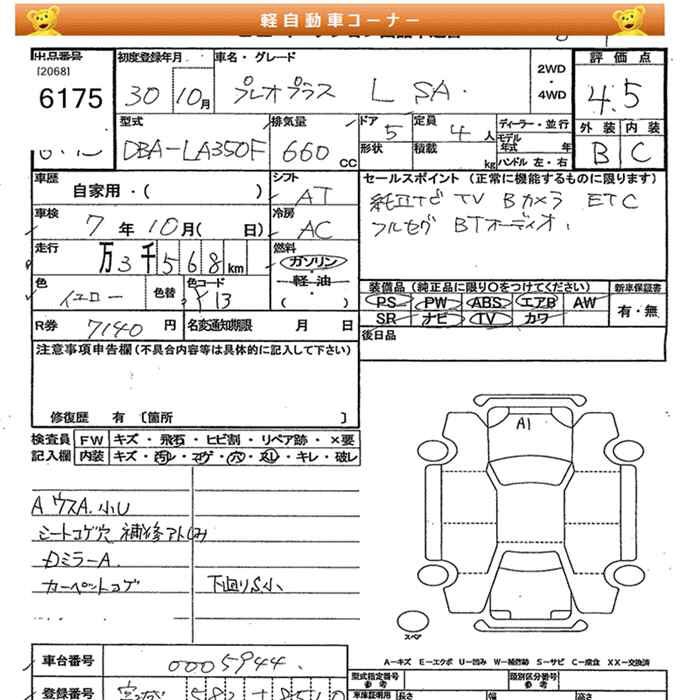 軽自動車コーナー
出品番号 初度登録年月 車名・グレード 評価点
[2068]
6175 30 10月 プレオプラス L SA 2WD・4WD 4.5
型式 排気量 ドア 定員 ディーラー・並行 外装 内装
DBA-LA350F 660 CC 5 4人 モデル年式 年 B C
形状 積載 kg ハンドル 左・右
車歴 シフト セールスポイント (正常に機能するものに限ります)
自家用・( ) AT 純正ナビ TV Bカメラ ETC
車検 冷房 フルセグ BTオーディオ
7年10月( 日) AC
走行 燃料
万3千568km ガソリン・軽油・( )
色 色替 色コード 装備品 (純正品に限り○をつけてください) 新車保証書
イエロー Y13 PS PW ABS エアB AW 有・無
SR ナビ TV カワ
R券 7140円 名変通知期限 月 日 後日品
注意事項申告欄(不具合内容等は具体的に記入して下さい)
修復歴 有 〔箇所 〕
検査員 FW キズ・飛石・ヒビ割・リペア跡・×要
記入欄 内装 キズ・汚レ・コゲ・穴・スレ・キレ・破レ
A1
A ウスA.小U
シートコゲ穴 補修アト
ミラーA
カーペットコゲ 下回りS小
スペア
A−キズ E−エクボ U−凹み W−補修跡 S−サビ C−腐食 XX−交換済
車台番号 0005944
登録番号
型式指定番号 類別区分番号
参考 参考
車庫証明用 長さ 幅 高さ